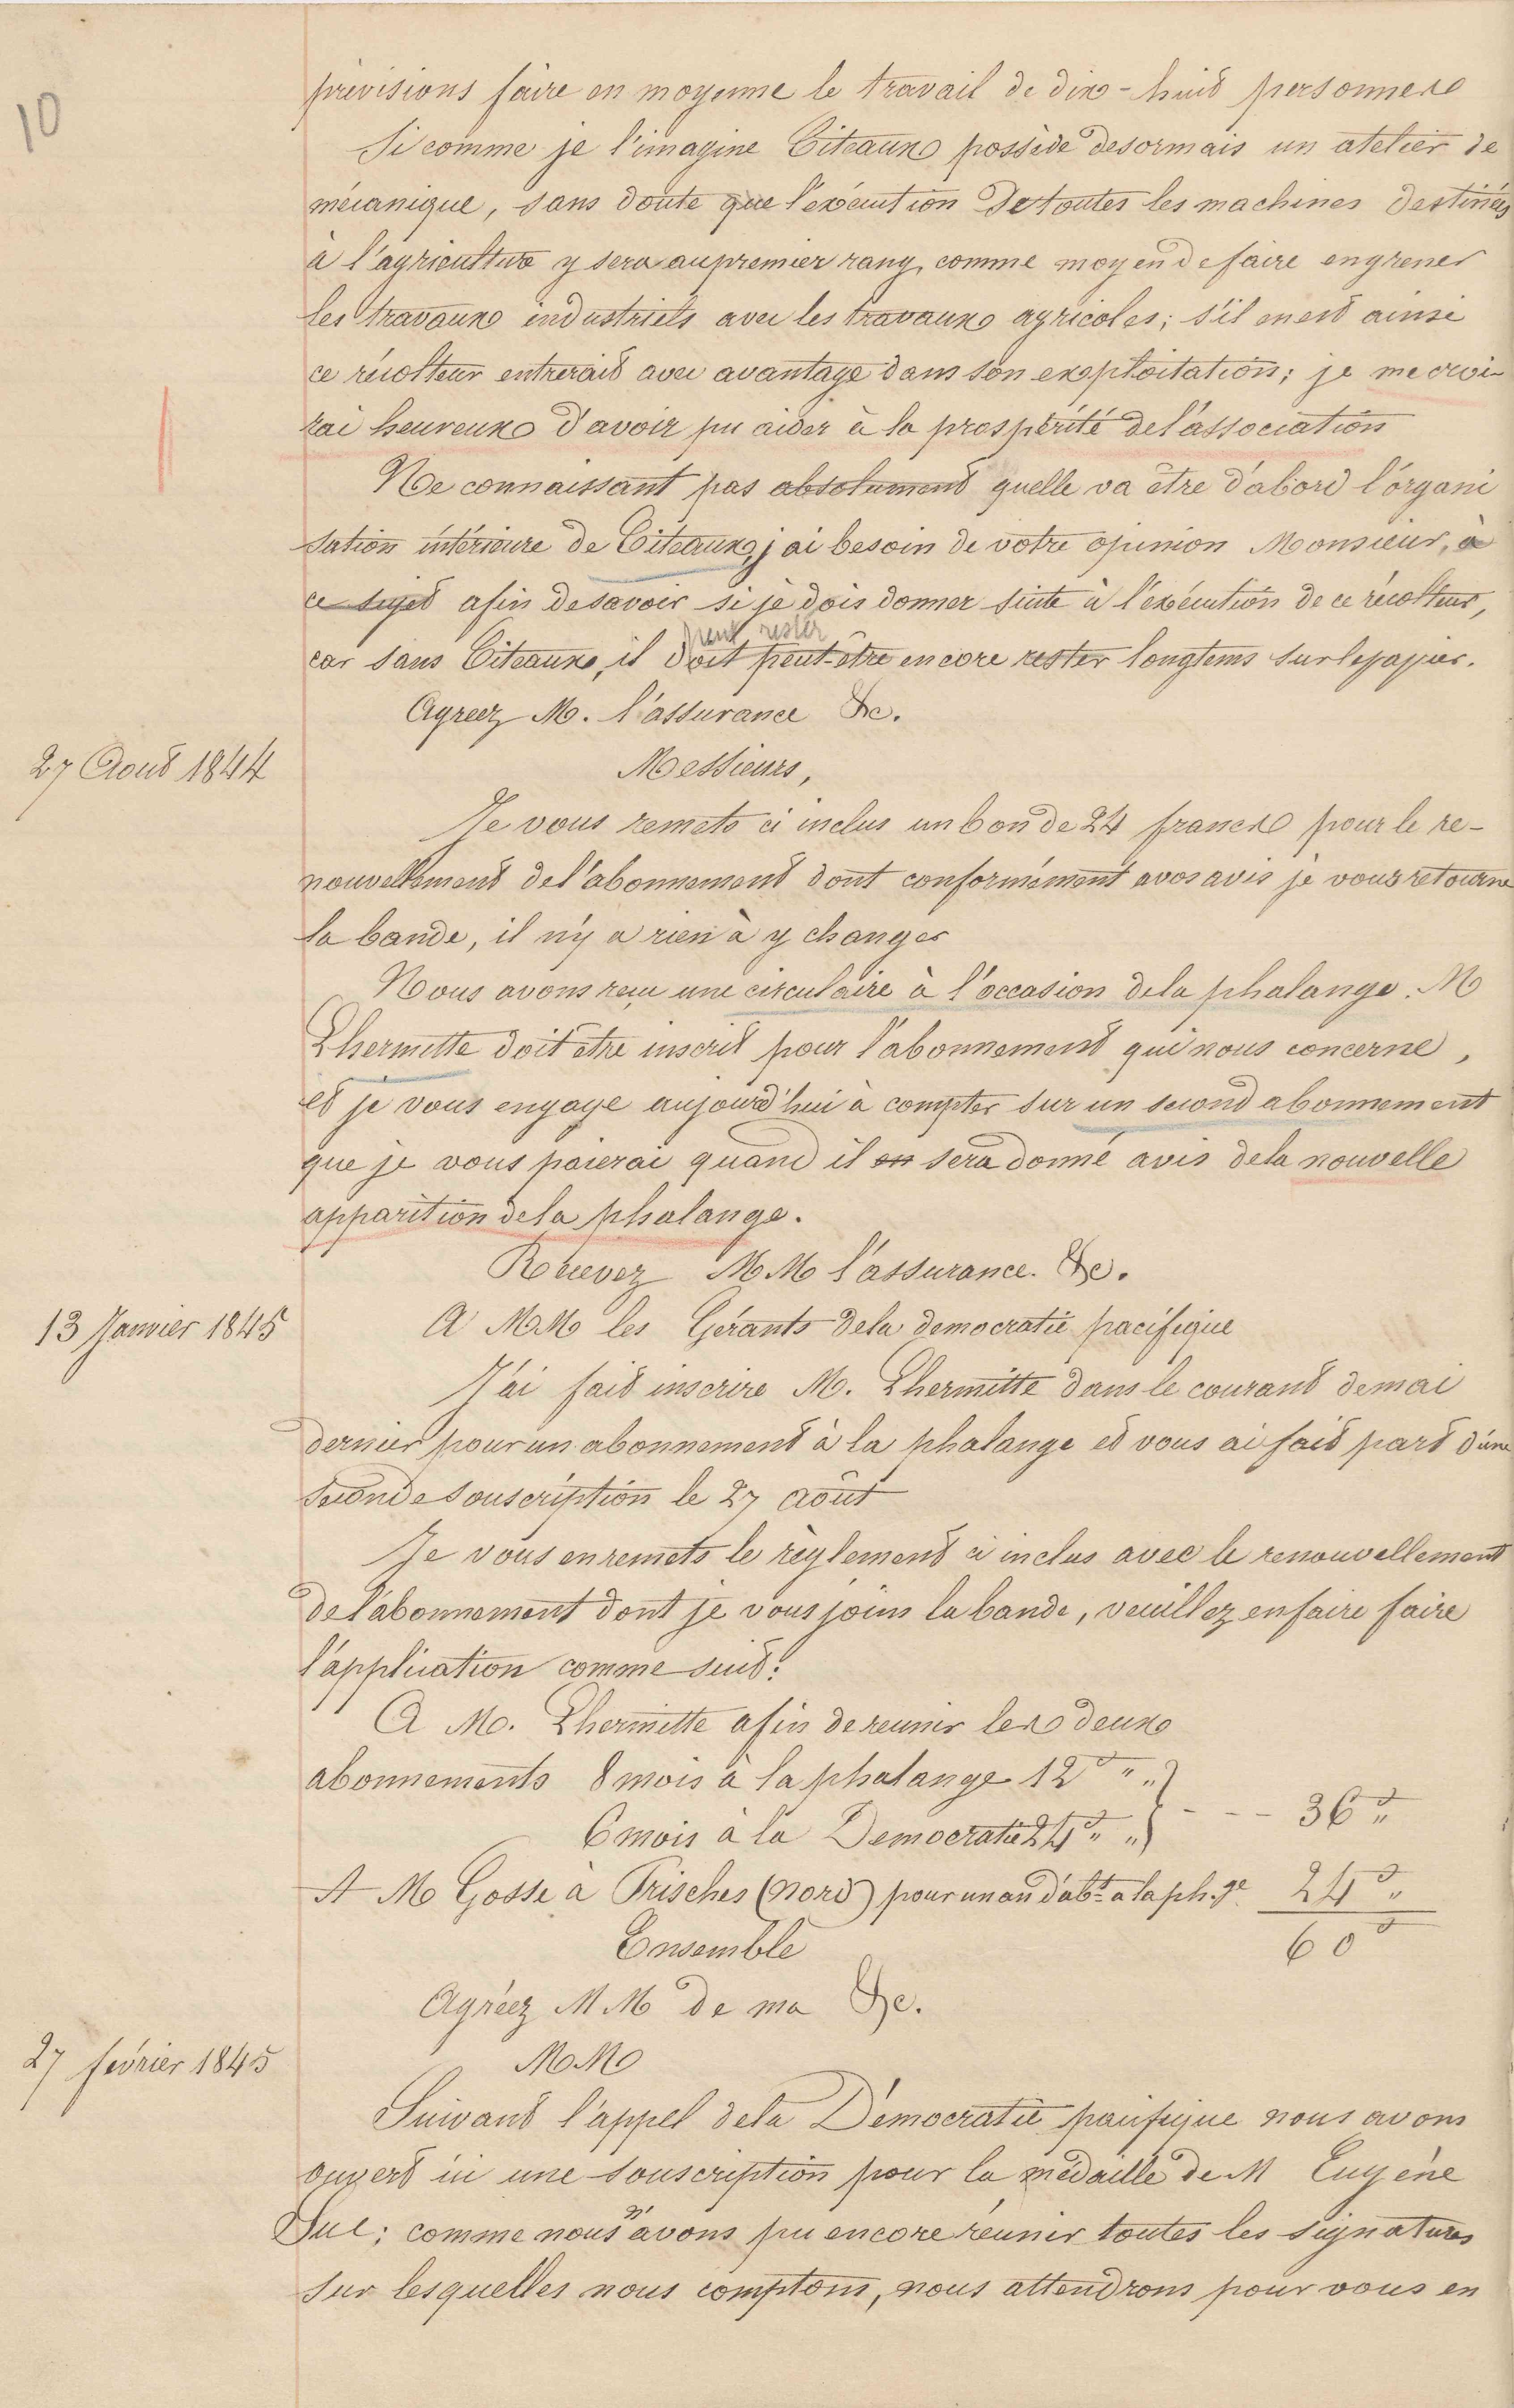 10
prévisions faire en moyenne le travail de dix-huit personnes
Si comme je l'imagine Citeaux possède desormais un atelier de
mécanique, sans doute que l'exécution de toutes les machines destinées
à l'agriculture y sera au premier rang, comme moyen de faire engrener
les travaux industriels avec les travaux agricoles; s'il en est ainsi
ce récolteur entrerait avec avantage dans son exploitation; je me croi-
rai heureux d'avoir pu aider à la prospérité de l'association
Ne connaissant pas absolument quelle va être d'abord l'organi
sation intérieure de Citeaux, j'ai besoin de votre opinion Monsieur, à
ce sujet afin de savoir si je dois donner suite à l'exécution de ce récolteur,
peut rester
car sans Citeaux, il doit peut-être encore rester longtems sur le papier.
Agreez M. l'assurance &c.
27 Aout 1844
Messieurs,
Je vous remets ci inclus un bon de 24 francs pour le re-
nouvellement de l'abonnement dont conformément a vos avis je vous retourne
la bande, il n'y a rien à y changer
Nous avons reçu une circulaire à l'occasion de la phalange. M
Lhermitte doit être inscrit pour l'abonnement qui nous concerne,
et je vous engage aujourd'hui a compter sur un second abonnement
que je vous paierai quand il en sera donné avis de la nouvelle
apparition de la phalange.
Recevez M.M l'assurance. &c.
13 Janvier 1845
A M.M les Gérants de la democratie pacifique
J'ai fait inscrire M. Lhermitte dans le courant de mai
dernier pour un abonnement à la phalange et vous ai fait part d'une
seconde souscription le 27 août
Je vous en remets le règlement ci inclus avec le renouvellement
de l'abonnement dont je vous joins la bande, veuillez en faire faire
l'application comme suit:
A M. Lhermitte afin de reunir les deux
abonnements 8 mois à la phalange 12 " "
36 "
6 mois à la Democratie 24 " "
A M Gosse à Prisches (Nord) pour un an d'abt a la ph.ge 24 "
Ensemble 60
Agréez M.M de ma &c.
27 février 1845
M.M
Suivant l'appel de la Démocratie pacifique nous avons
ouvert ici une souscription pour la médaille de M Eugène
Sue; comme nous n'avons pu encore réunir toutes les signatures
sur lesquelles nous comptons, nous attendrons pour vous en